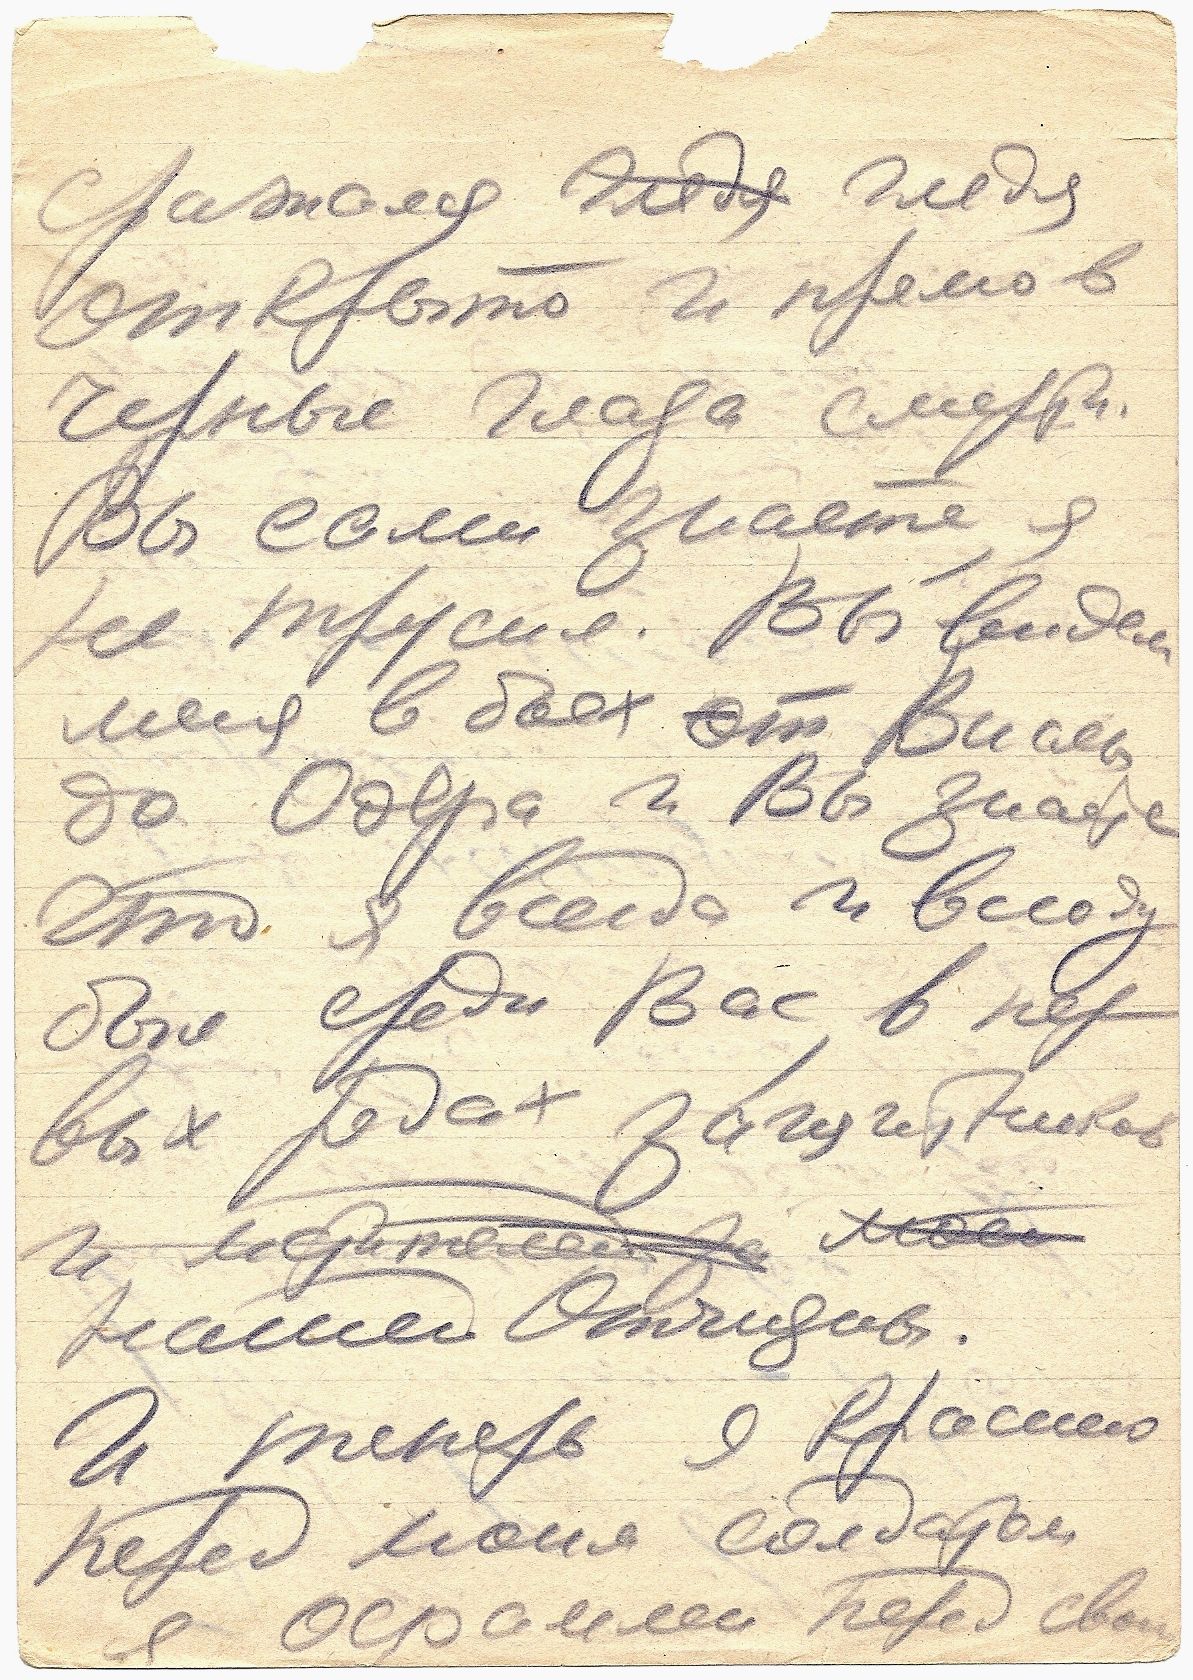 сражался глядя глядя
открыто и прямо в
черные глаза смерти.
Вы сами знаете я
не трусил. Вы видели
меня в боях от Вислы
до Одера и Вы знаете
что я всегда и всюду
был среди Вас в пер
вых рядах защитников
и мстителей за моей
нашей Отчизны.
И теперь я краснею
перед моим солдатом
я осрамлен перед свои